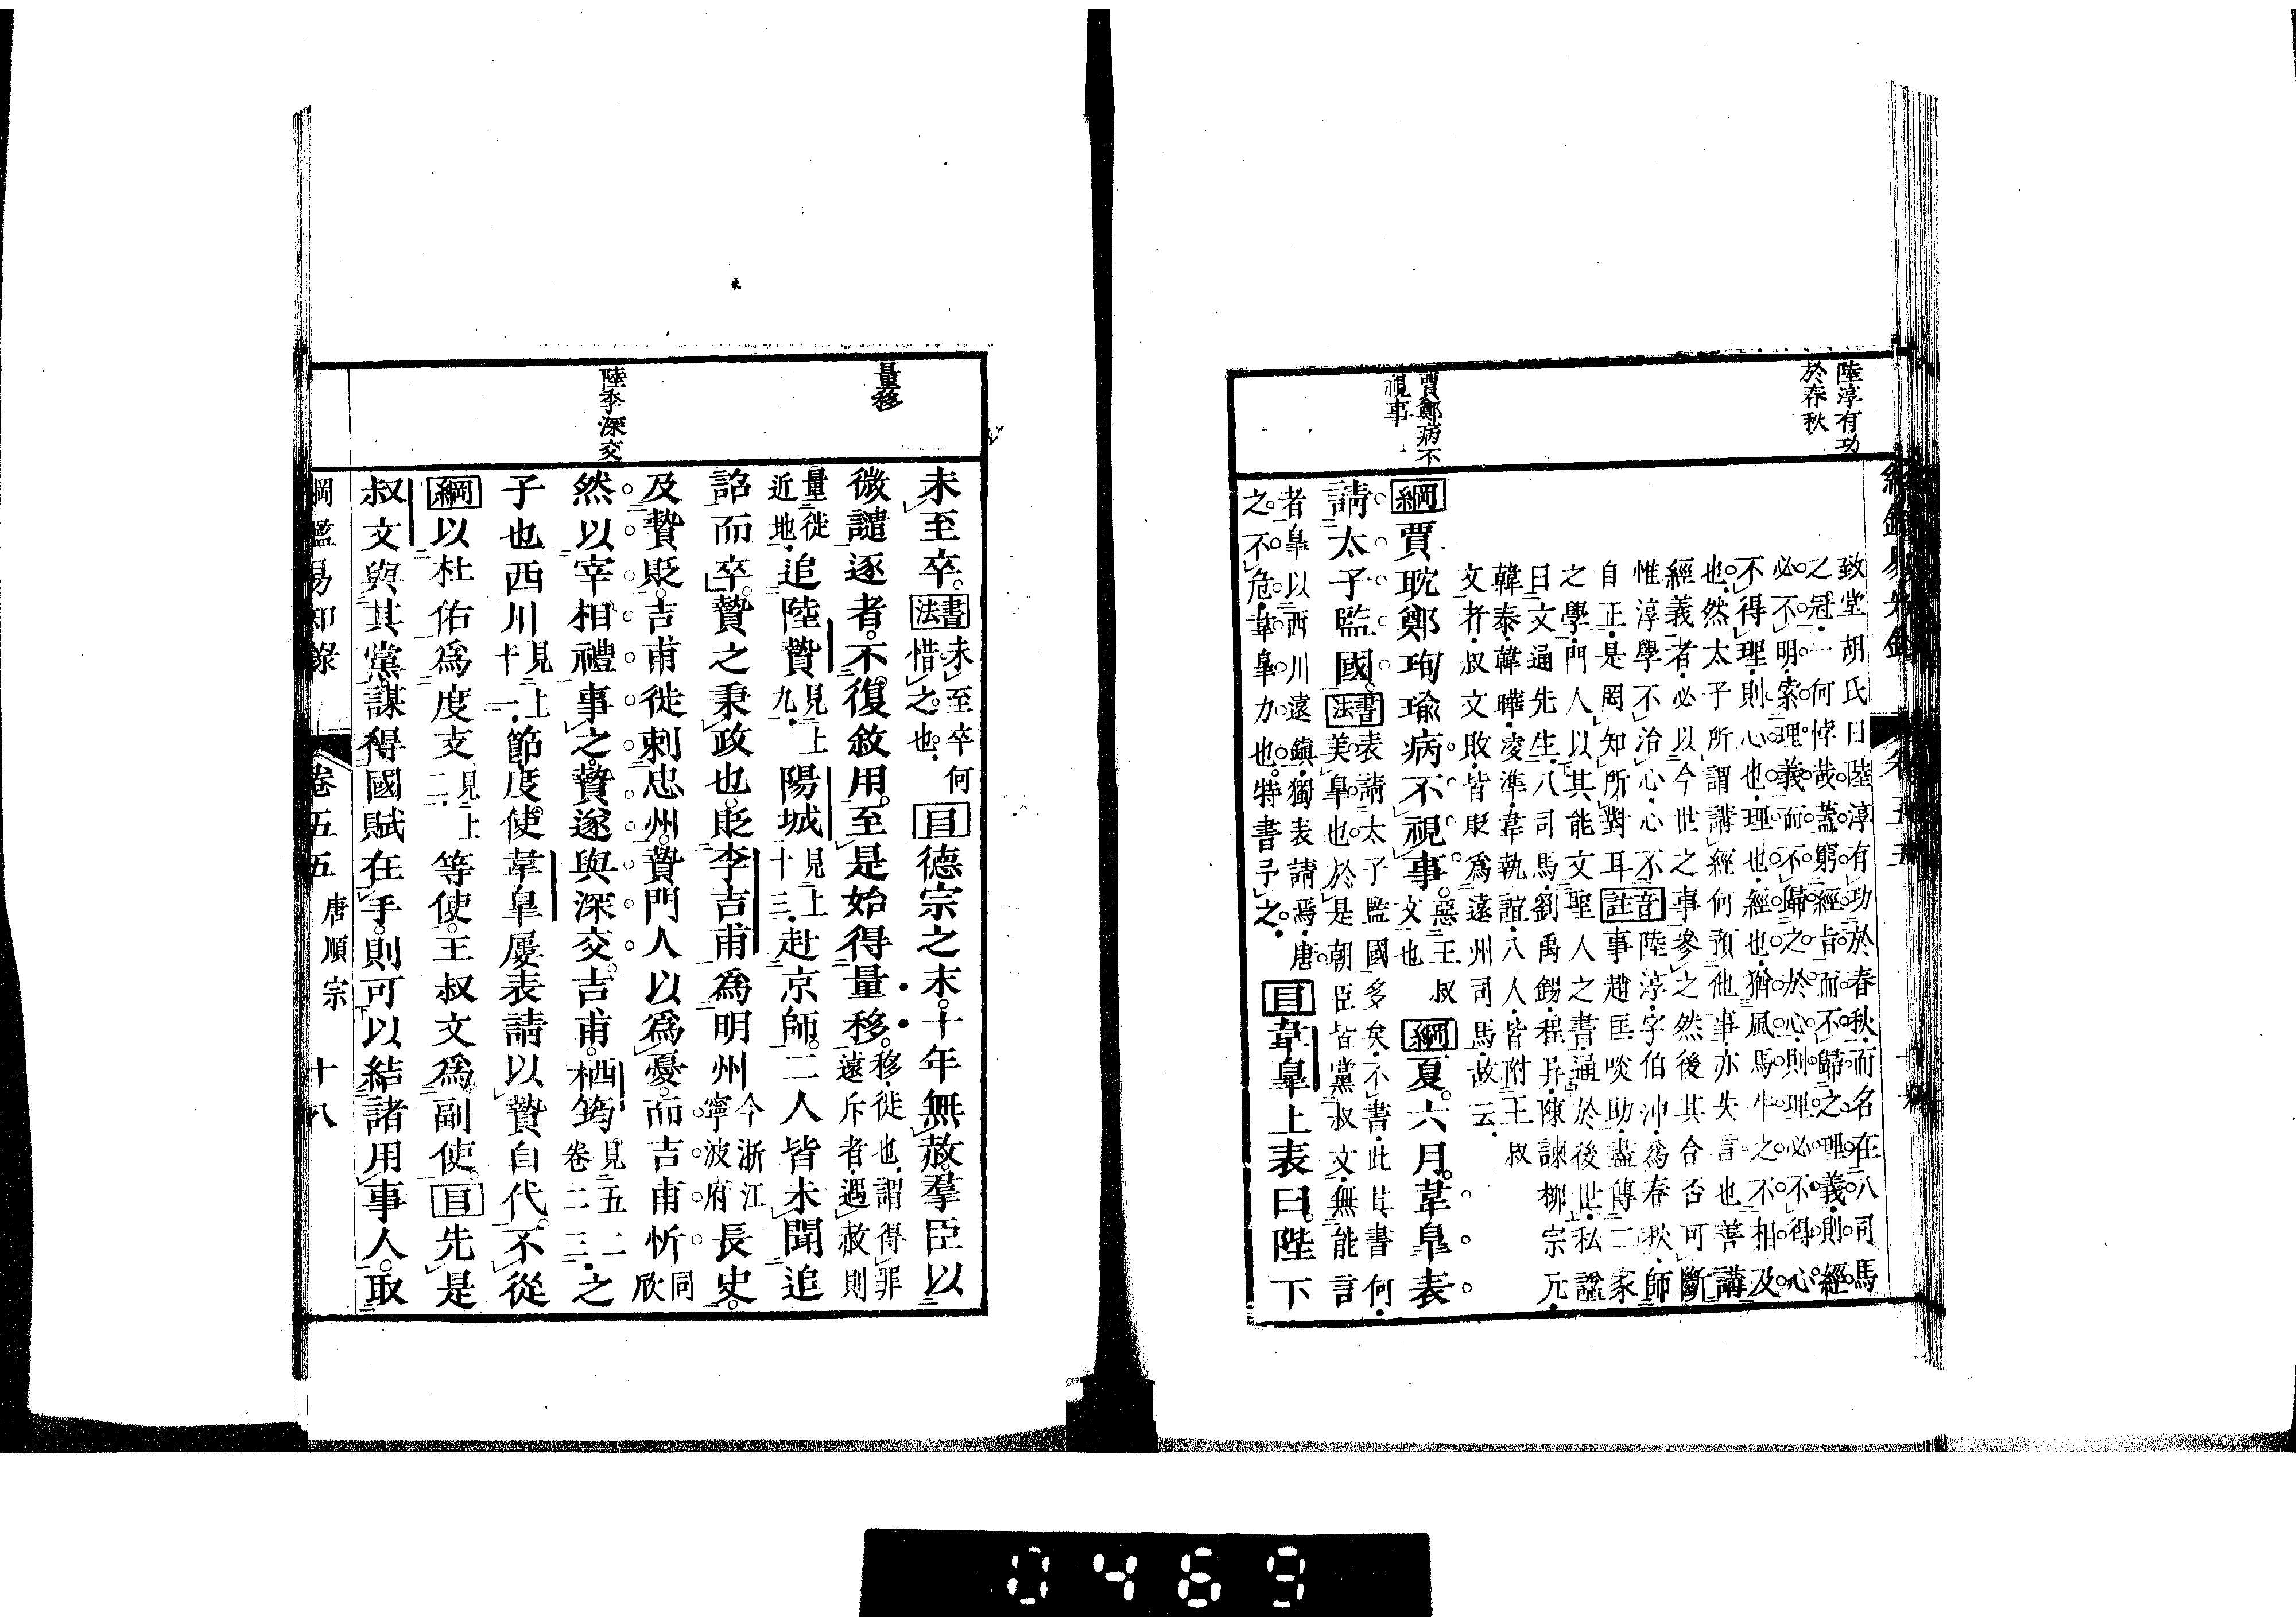 陸淳有功
於春秋
致堂胡氏曰陸淳有功於春秋而名在八司馬
之冠一何悖哉蓋窮經旨而不歸之理義則經
必不明索理義而不歸之於心則理必不得心
不得理則心也理也經也猶風馬牛之不相及
也然太子所謂講經何預他事亦失言也善講
經義者必以今世之事參之然後其合否可斷
惟淳學不治心心不
自正是罔知所對耳
音註
陸淳字伯沖為春秋師
事趙匡啖助盡傳二家
之學門人以其能文聖人之書通於後世私諡
曰文通先生八司馬劉禹錫程异陳諫柳宗元
韓泰韓曄凌準韋執誼八人皆附王叔
文者叔文敗皆貶為遠州司馬故云
賈鄭病不
視事
綱賈耽鄭珣瑜病不視事
惡王叔
文也
綱夏六月韋臯表
請太子監國
書法
表請太子監國多矣不書此其書何
美臯也於是朝臣皆黨叔文無能言
者臯以西川遠鎮獨表請焉唐
之不危韋臯力也特書予之
目韋臯上表曰陛下
量移
未至卒
書法
未至卒何
惜之也
目德宗之末十年無赦羣臣以
微譴逐者不復敘用至是始得量移
移徙也謂得罪
遠斥者遇赦則
量徙
近地
追陸贄
見上
九
陽城
見上
十三
赴京師二人皆未聞追
詔而卒贄之秉政也貶李吉甫為明州
今浙江
寧波府
長史
陸李深交
及贄貶吉甫徙刺忠州贄門人以為憂而吉甫忻
同
欣
然以宰相禮事之贄遂與深交吉甫栖筠
見五二
卷二三
之
子也西川
見上
十一
節度使韋臯屢表請以贄自代不從
綱以杜佑為度支
見上
二
等使王叔文為副使目先是
叔文與其黨謀得國賦在手則可以結諸用事人取
綱鑑易知錄
卷五五
唐順宗
十八
0469